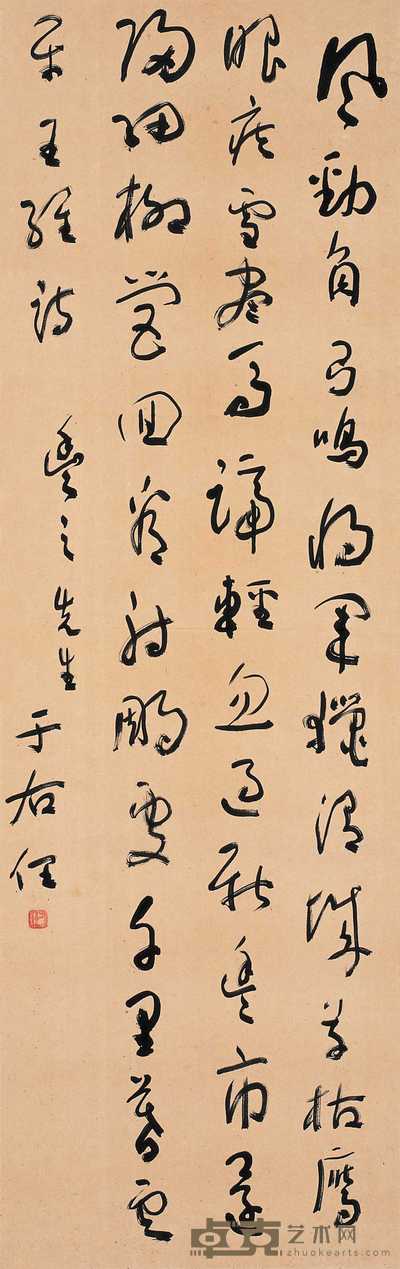 風勁角弓鳴將軍獵渭城草枯鷹
眼疾雪盡馬蹄輕忽過新豐市還
歸細柳營回看射鵰處千里暮雲
平王維詩 豐之先生 于右任
卓克艺术网
zhuokearts.com